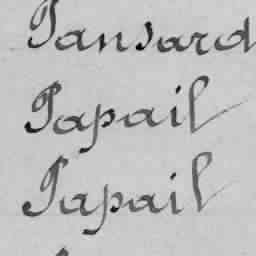 Pansard
Papail
Papail